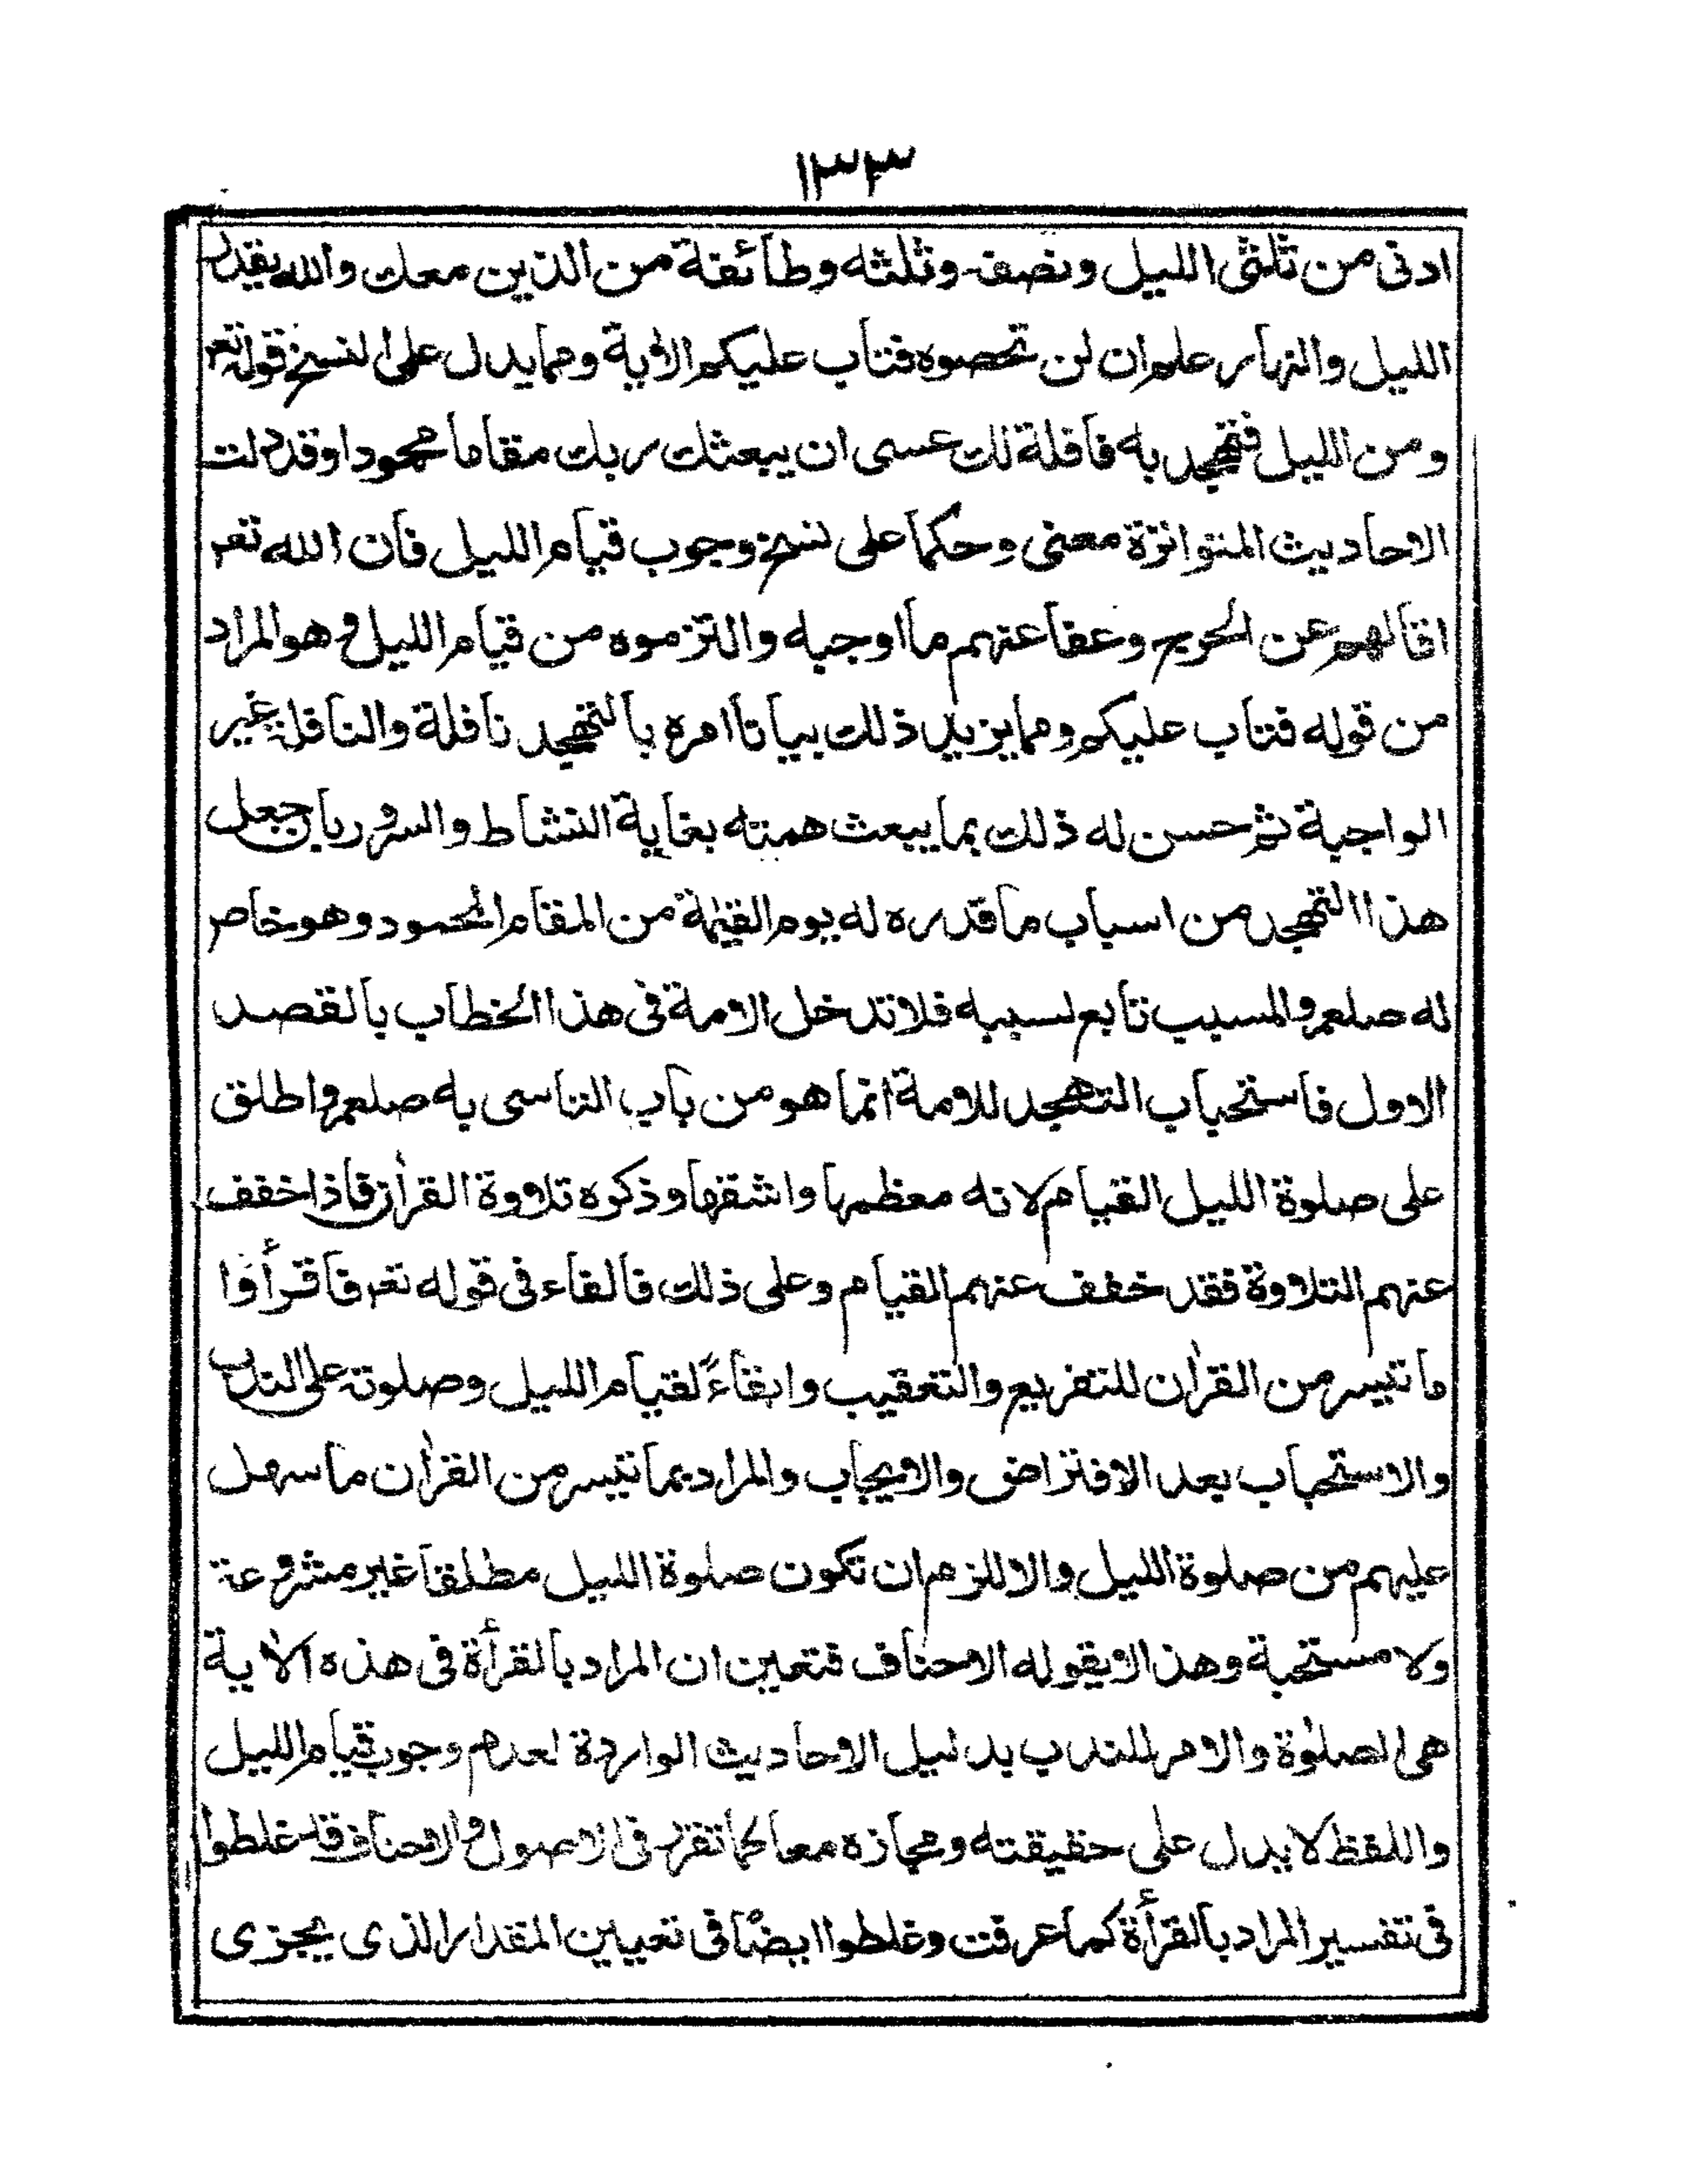 ١٣٣
ادنى من ثلثى الليل ونصفه وثلثه وطائفة من الذين معك والله يقدر
الليل والنهار علم ان لن تحصوه فتاب عليكم الأية ومما يدل على النسخ قوله تعر
ومن الليل فتهجد به نافلة لك عسى ان يبعثك ربك مقاما محمودا وقد دلت
الاحاديث المتواترة معنى وحكما على نسخ وجوب قيام الليل فان الله تعر
اقالهم عن الحريج وعفا عنهم ما اوجبه والتزموه من قيام الليل وهو المراد
من قوله فتاب عليكم ومما يزيد ذلك بيانا امره بالتهجد نافلة والنافلة غير
الواجبة ثم حسن له ذلك بما يبعث همته بغاية النشاط والسرور بان جعل
هذا التهجد من اسباب ما قدره له يوم القيمة من المقام المحمود وهو خاص
له صلعم والمسبب تابع لسببه فلا تدخل الامة فى هذا الخطاب بالقصد
الاول فاستحباب التهجد للامة انما هو من باب التاسى به صلعم واطلق
على صلوة الليل القيام لانه معظمها واشقها وذكوه تلاوة القرأن فاذا خفف
عنهم التلاوة فقد خفف عنهم القيام وعلى ذلك فالفاء فى قوله تعر فاقرأوا
ما تيسر من القرأن للتفريع والتعقيب وابقاءً لقيام الليل وصلوته على الندب
والاستحباب بعد الافتراض والايجاب والمراد بما تيسر من القرأن ما سهل
عليهم من صلوة الليل والا للزم ان تكون صلوة الليل مطلقا غير مشروعة
ولا مستحبة وهذا لا يقوله الاحناف فتعين ان المراد بالقرأة فى هذه الأية
هى الصلوة والامر للندب بدليل الاحاديث الواردة لعدم وجوب قيام الليل
واللفظ لا يدل على حقيقته ومجازه معا كما تقرر فى الاصول والاحناف قد غلطوا
فى تفسير المراد بالقرأة كما عرفت وغلطوا ايضًا فى تعيين المقدار الذى يجزى